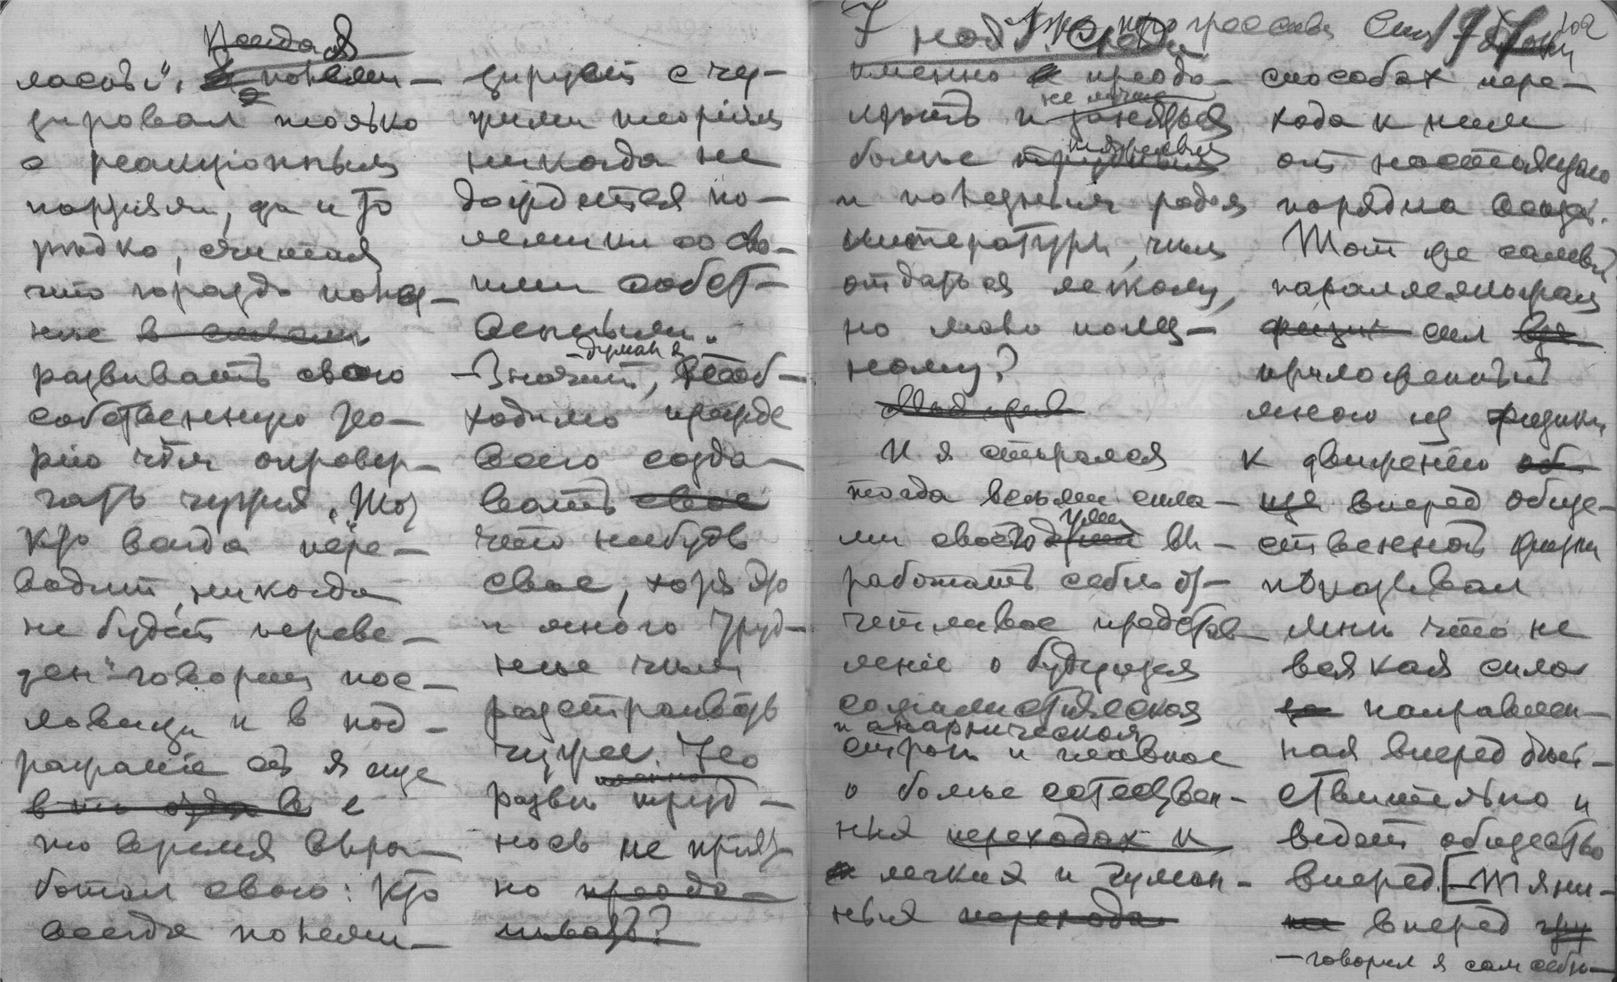 Тогда я
ласовъ", полеми-
зировалъ только
с реакціонными
партіями, да и то
рѣдко, считая
что гораздо полез-
нѣе
развивать свою
собственную тео-
рію чѣм опровер-
гать чужія. "Тот
кто всегда пере-
водит, никогда
не будет переве-
ден" говорит пос-
ловица и в под-
ражаніе ей я еще
в
то время выра-
ботал свою: Кто
всегда полеми-
зирует с чу-
жими теоріями
никогда не
дождется по-
лемики со сво-
ими собст-
венными."
– думал я
– Значит, необ-
ходимо прежде
всего созда-
вать свое
что нибудь
свое, хотя это
и много труд-
нѣе чѣм
разстраивать
чужое. Но
именно
развѣ труд-
ность не прият-
но преодо-
лѣвать?
7
именно преодо-
лѣть и
не лучше
заняться
болѣе
и полезным родом
литературы, чѣм
отдаться легкому,
но мало полез-
ному?
И я старался
тогда всѣми сила-
ми своего ума вы-
работать себѣ от-
четливое представ-
леніе о будущем
соціалистическом
и анархическом
строѣ и главное
о болѣе естествен-
ных переходах и
легких и гуман-
ных перехода
способах пере-
хода к ним
от настоящаго
порядка вещей.
Тот же самый
параллелограм
физик сил
приложенный
мною из физики
к движенію об
ще вперед обще-
ственной жизни
показывал
мнѣ что не
всякая сила
направлен-
ная вперед дѣй-
ствительно и
ведет общество
вперед. [– Тяни-
не вперед
– говорил я сам себѣ –